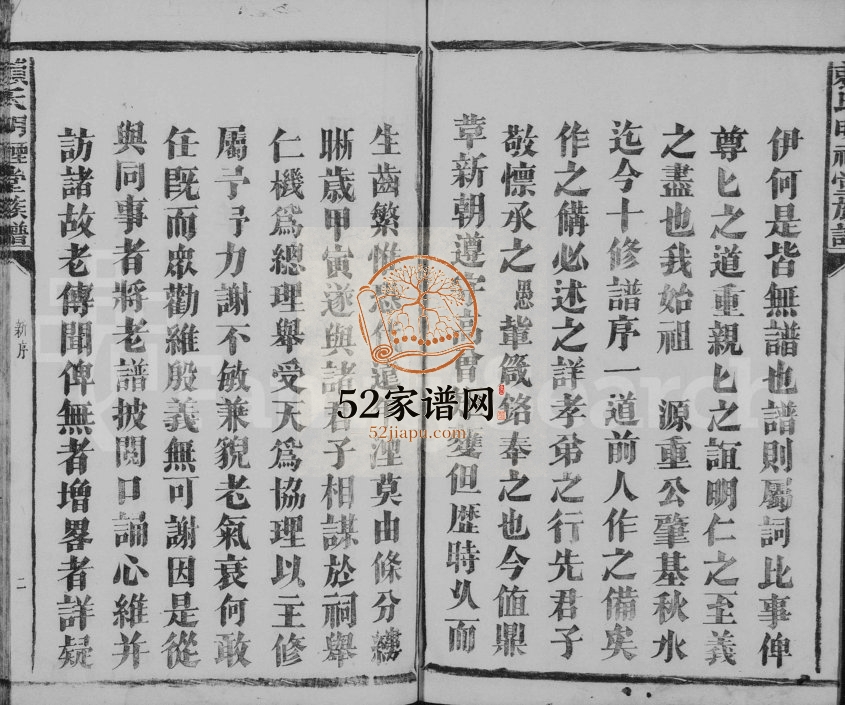 伊何是皆無譜也譜則屬詞比事俾
尊尊之道重親親之誼明仁之至義
之盡也我始祖　源重公肇基秋水
迄今十修譜序一道前人作之備矣
作之備必述之詳孝弟之行先君子
敬懔承之愚輩箴銘奉之也今值鼎
革新朝遵 但歴時久而
生齒繁 湮莫由條分縷
晰歲甲寅遂與諸君子相謀於祠舉
仁機爲總理舉受天爲協理以主修
屬予予力謝不敏兼貌老氣衰何敢
任既而衆勸維殷義無可謝因是從
與同事者將老譜披閱口誦心維并
訪諸故老傳聞俾無者增畧者詳疑
氏明禋堂族譜
新序
二
52家谱网
52jiapu.com